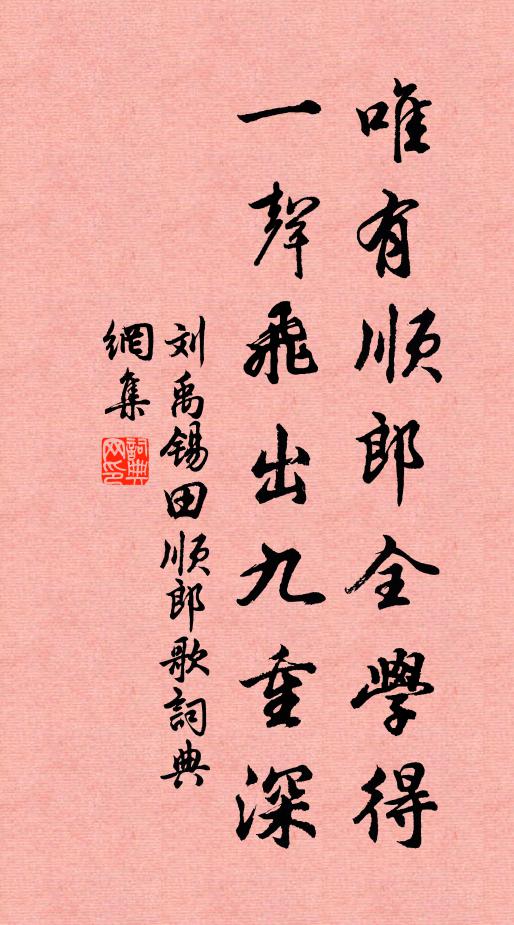 唯有順郎全學得
一聲飛出九重深
刘禹锡田順郎歌詞典
網集
詞典網印